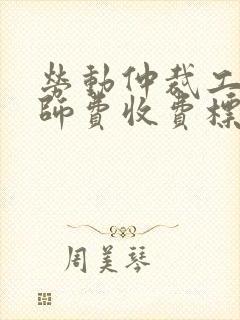 勞動仲裁工
師費收費標
周美琴